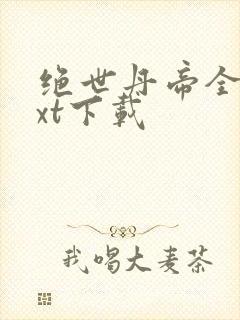 绝世丹帝全
xt下载
我喝大麦茶